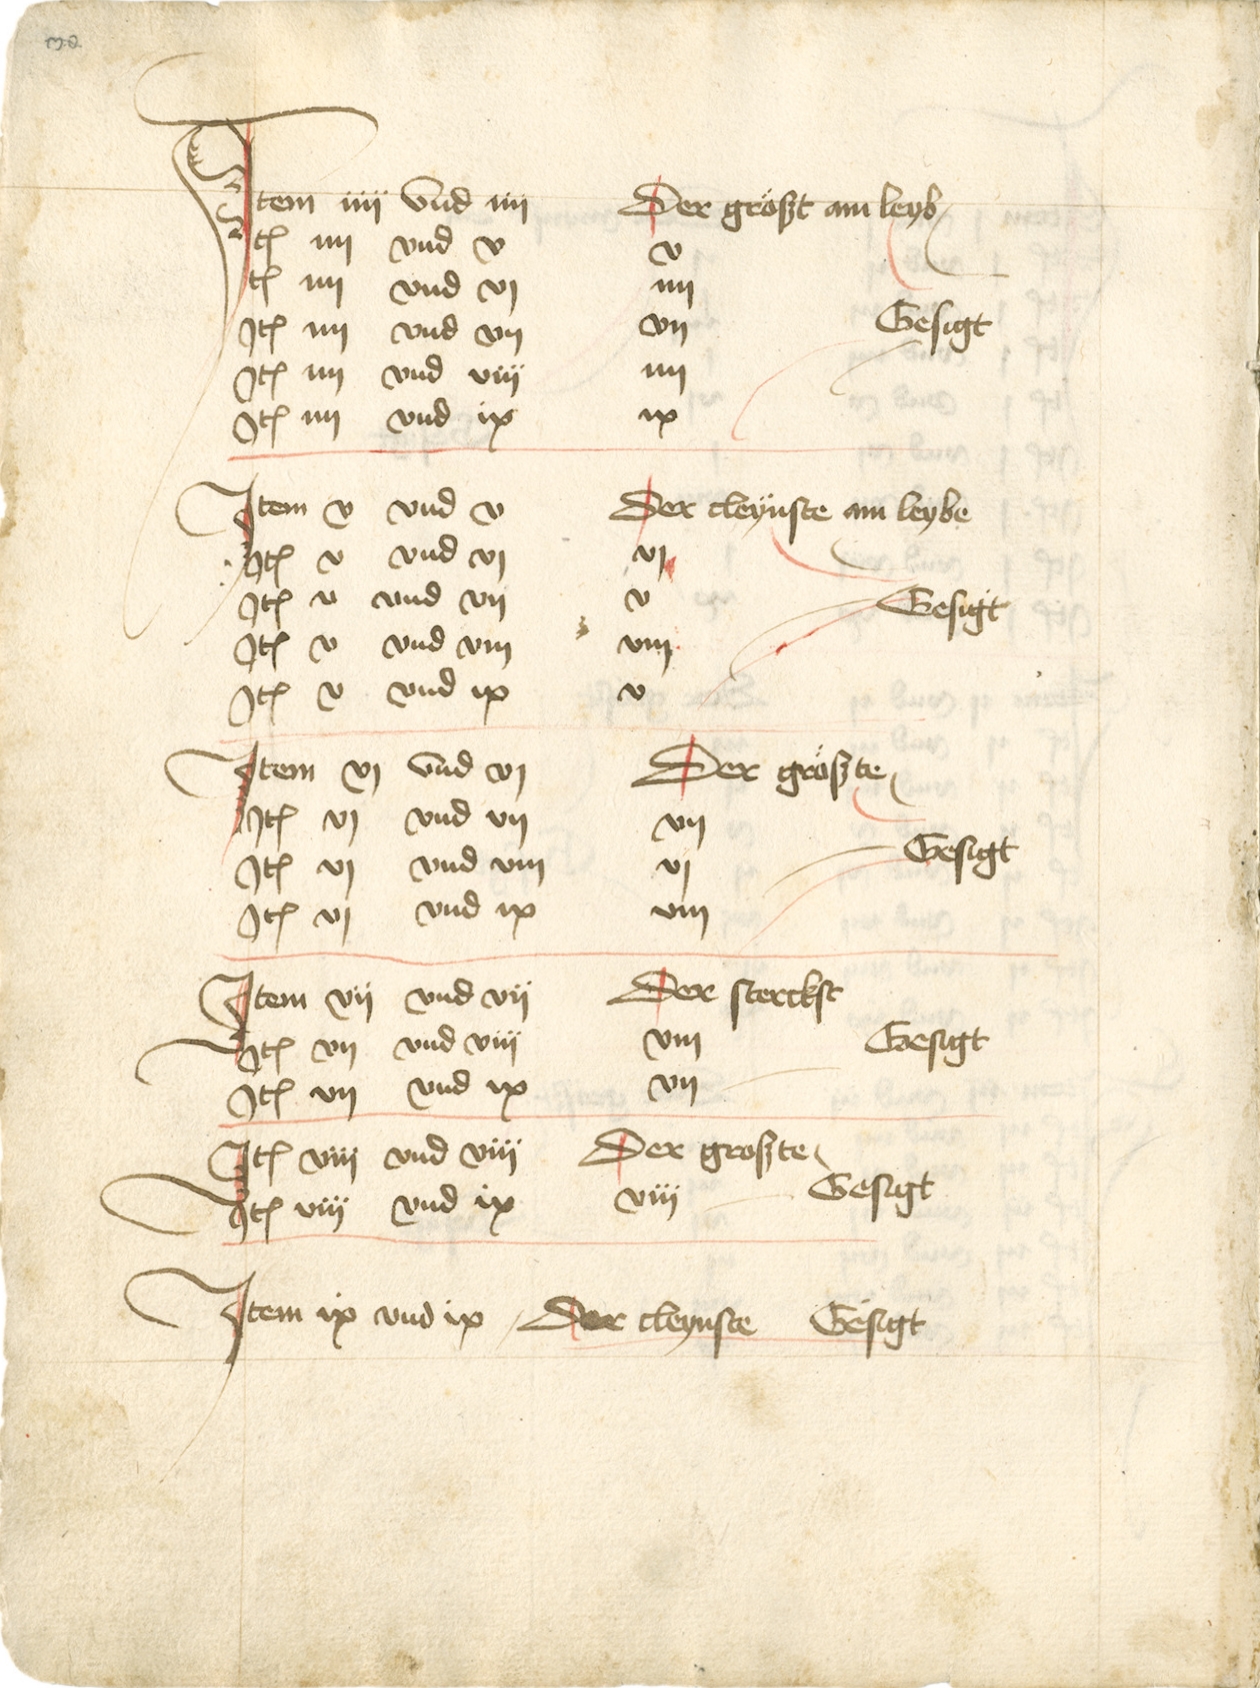 Item iiij vnd iiij Der größt am leyb
Itƈ iiij vnd v v
Itƈ iiij vnd vj iiij
Itƈ iiij vnd vij vij
Gesigt
Itƈ iiij vnd viij iiij
Itƈ iiij vnd ix ix
Item v vnd v Der cleÿnste am leybe
Itƈ v vnd vj vj
Itƈ v vnd vij v
Gesigt
Itƈ v vnd viij viij
Itƈ v vnd ix v
Item vj vnd vj Der größte
Itƈ vj vnd vij vij
Gesigt
Itƈ vj vnd viij vj
Itƈ vj vnd ix viij
Item vij vnd vij Der sterckst
Itƈ vij vnd viij viij Gesigt
Itƈ vij vnd ix vij
Itƈ viij vnd viij Der großte
Itƈ viij vnd ix viij Gesigt
Item ix vnd ix Der cleynste Gesigt